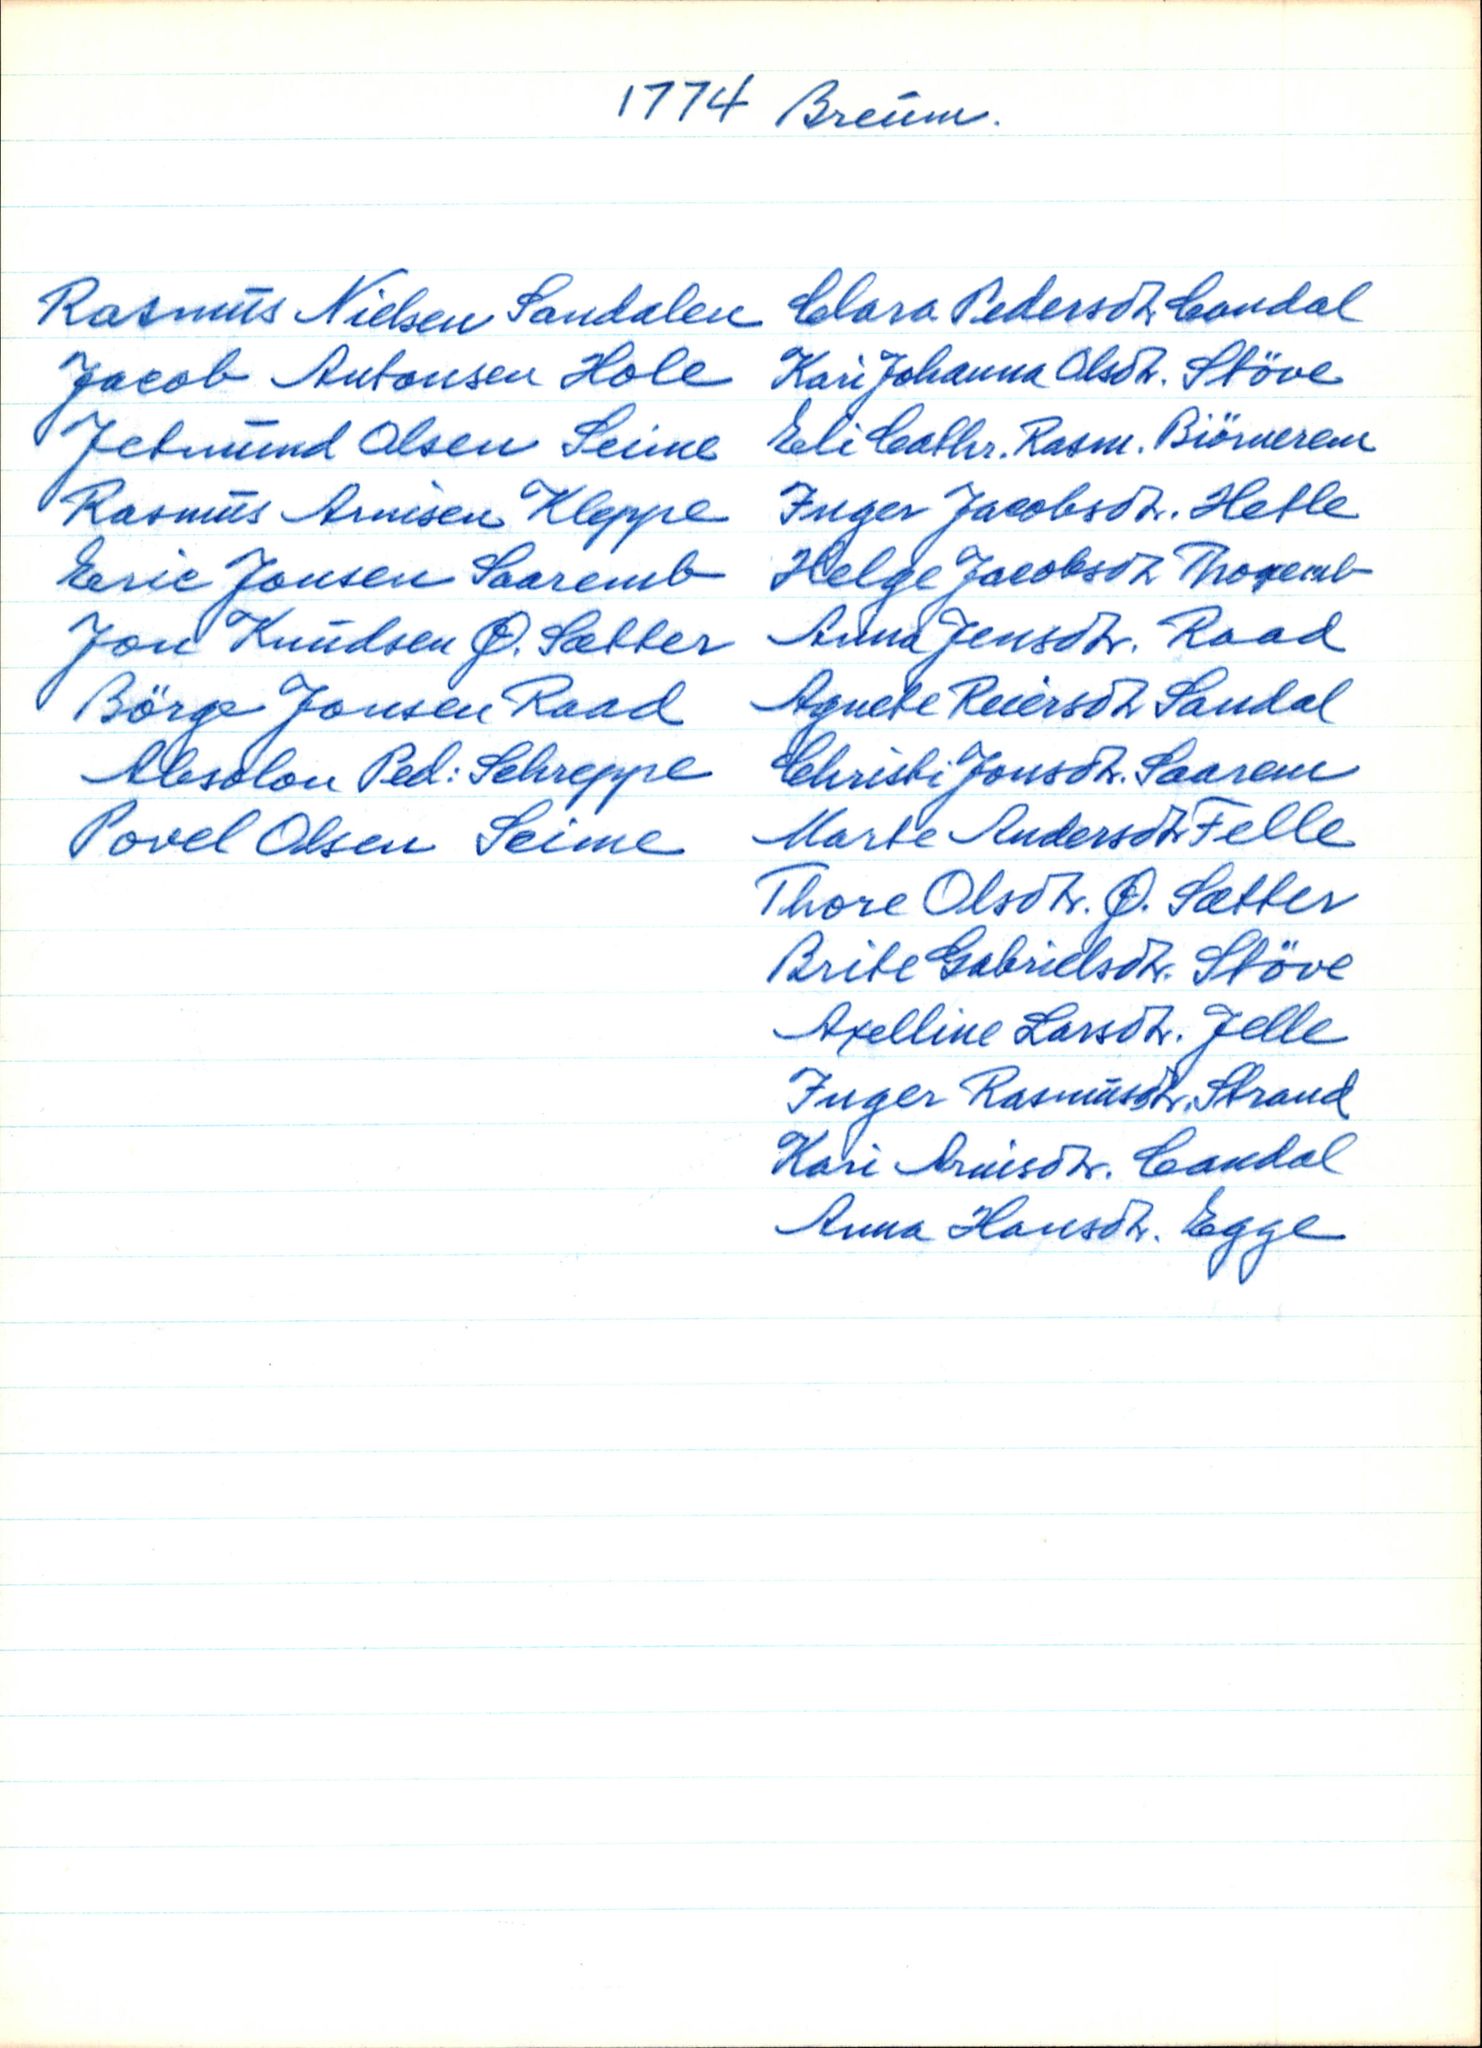 1774 Breum.
Rasmus Nielsen Sandalen
Jacob Antonsen Hole
Jetmund Olsen Seime
Rasmus Arnisen Kleppe
Eric Jonsen Saaremb
Jon Knudsen Ø. Sætter
Börge Jonsen Raad
Absolon Ped: Schreppe
Povel Olsen Seime
Clara Pedersdtr Candal
Kari Johanna Olsdtr. Stöve
Eli Cathr. Rasm. Biörnerem
Inger Jacobsdtr. Hetle
Helge Jacobsdtr
Anna Jensdtr. Raad
Agnete Reiersdtr Sandal
Christi Jonsdtr. Saarem
Marte Andersdtr Felle
Thore Olsdtr. Ø. Sætter
Brite Gabrielsdtr. Stöve
Axelline Larsdtr. Jelle
Inger Rasmusdtr. Strand
Kari Arnisdtr. Candal
Anna Hansdtr. Egge